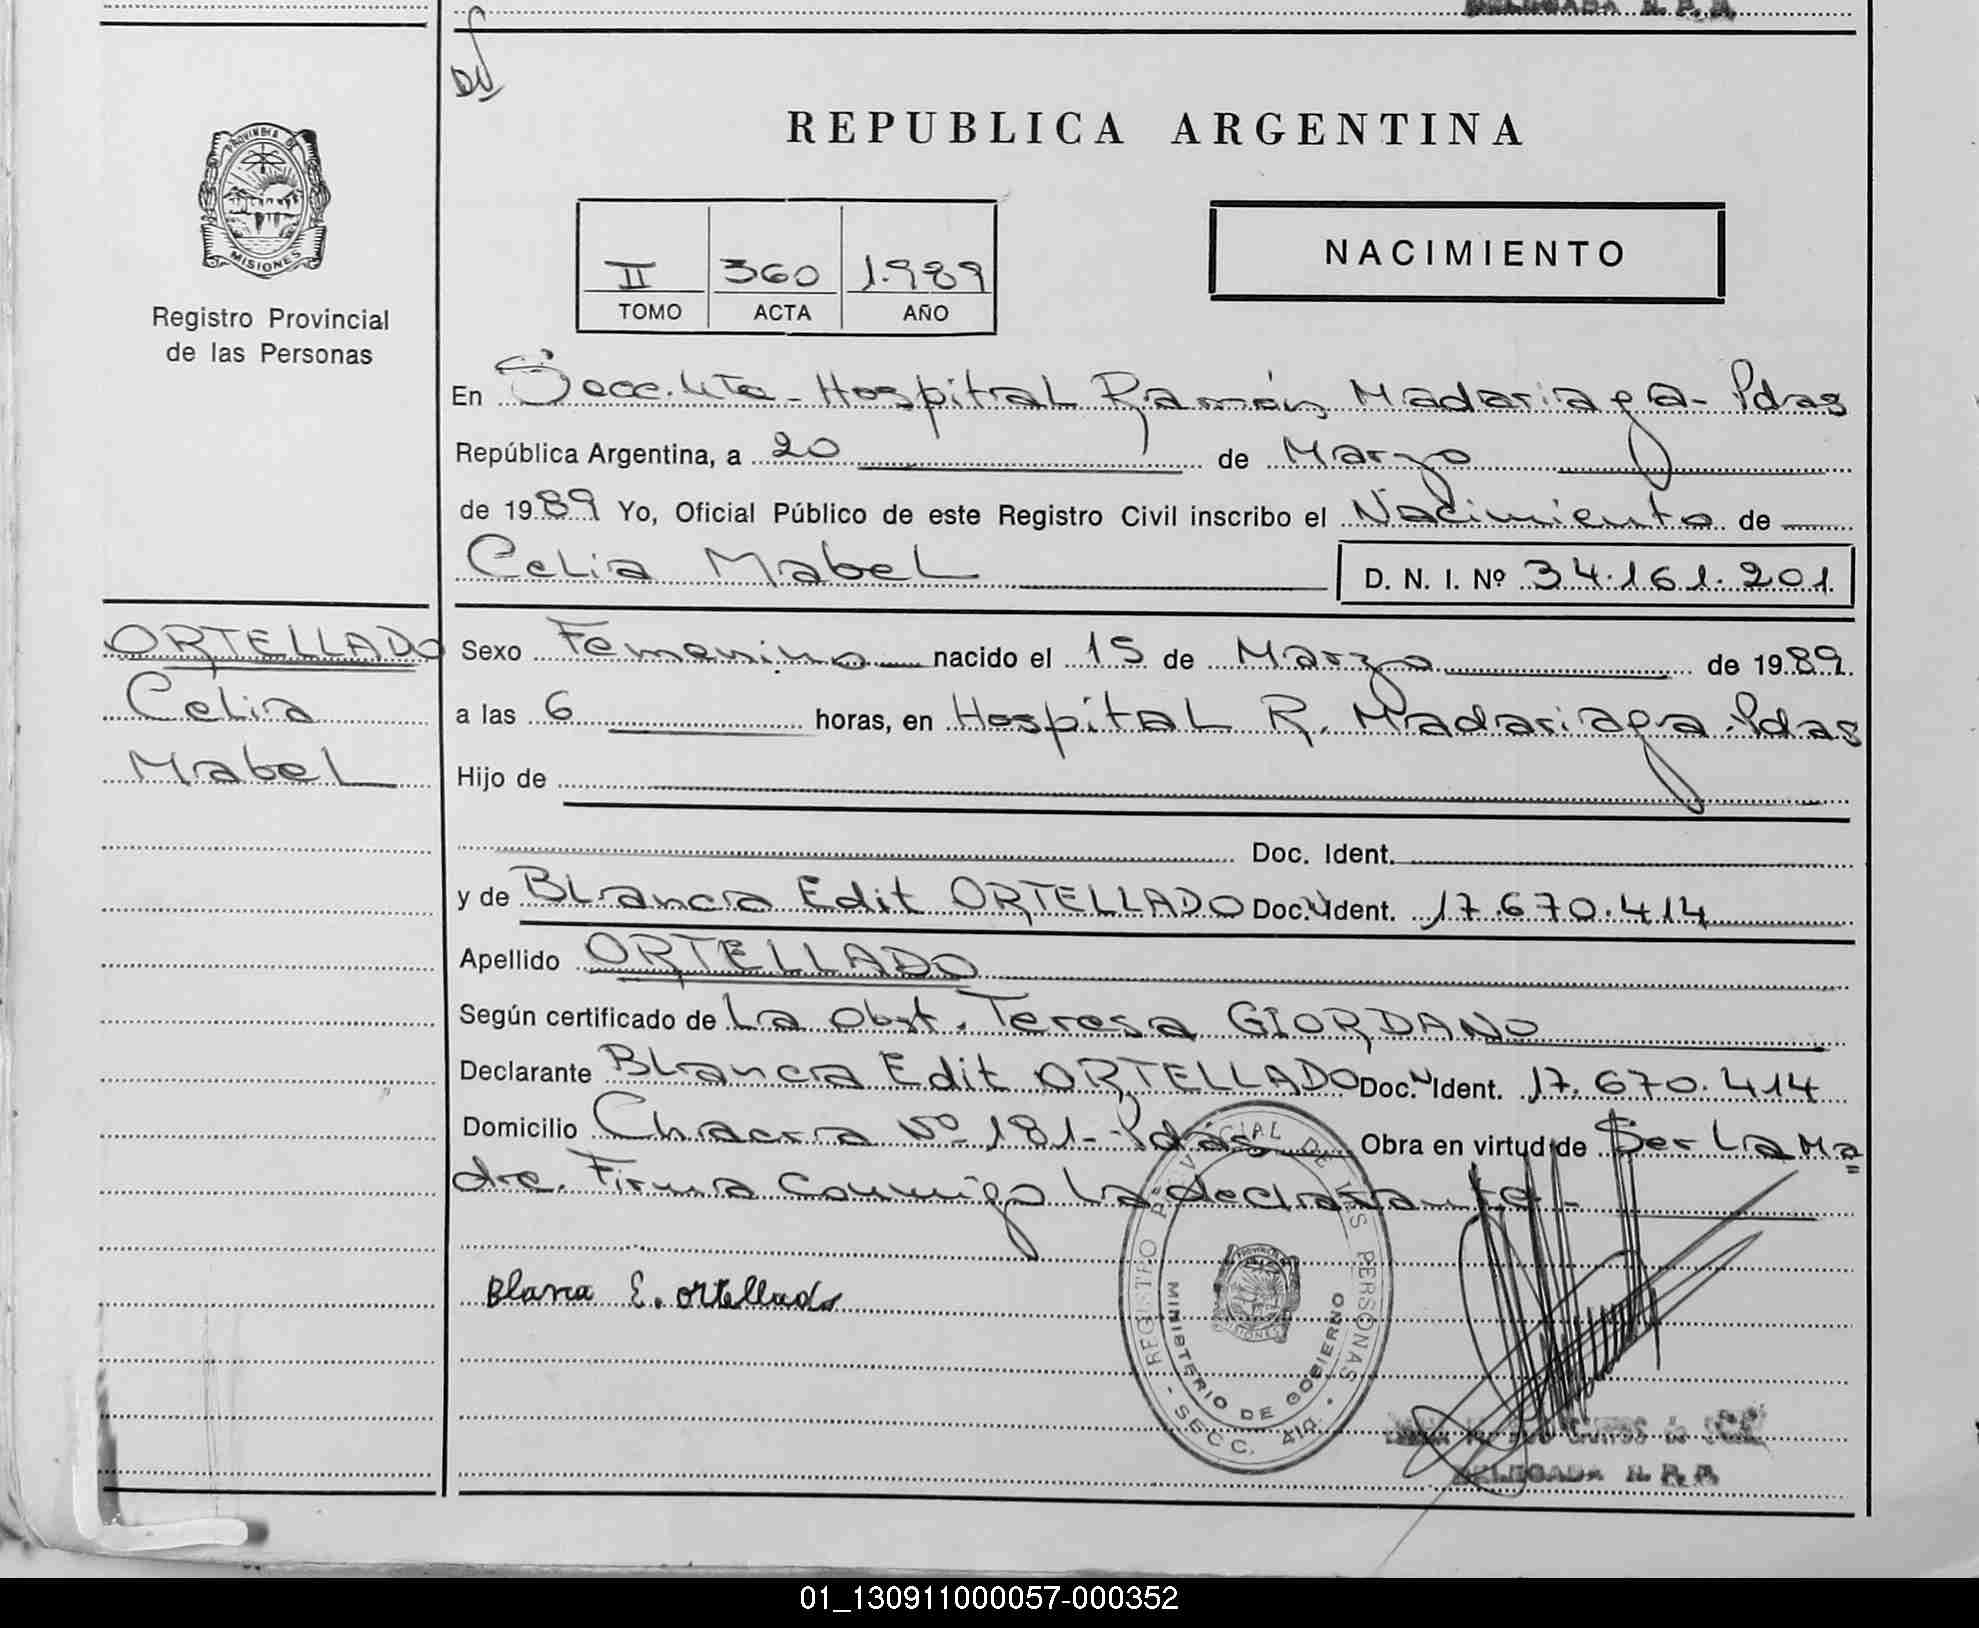 DELEGADA R. P. P.
REPUBLICA ARGENTINA
PROVINCIA DE
MISIONES
Registro Provincial
de las Personas
II 360 1.989
TOMO ACTA AÑO
NACIMIENTO
En Secc. 4ta - Hospital Ramón Madariaga - Pdas
República Argentina, a 20 de Marzo
de 1989 Yo, Oficial Público de este Registro Civil inscribo el Nacimiento de
Celia Mabel D. N. I. Nº 34.161.201
ORTELLADO
Celia
Mabel
Sexo Femenino nacido el 15 de Marzo de 1989
a las 6 horas, en Hospital R. Madariaga. Pdas
Hijo de
Doc. Ident.
y de Blanca Edit ORTELLADO Doc. Ident. 17.670.414
Apellido ORTELLADO
Según certificado de La Obst. Teresa GIORDANO
Declarante Blanca Edit ORTELLADO Doc. Ident. 17.670.414
Domicilio Chacra Nº 181 - Pdas Obra en virtud de Ser La Ma
dre. Firma conmigo la declarante -
Blanca E. ortellado
REGISTRO PROVINCIAL DE LAS PERSONAS
MINISTERIO DE GOBIERNO
SECC. 4ta.
DELEGADA R. P. P.
01_130911000057-000352